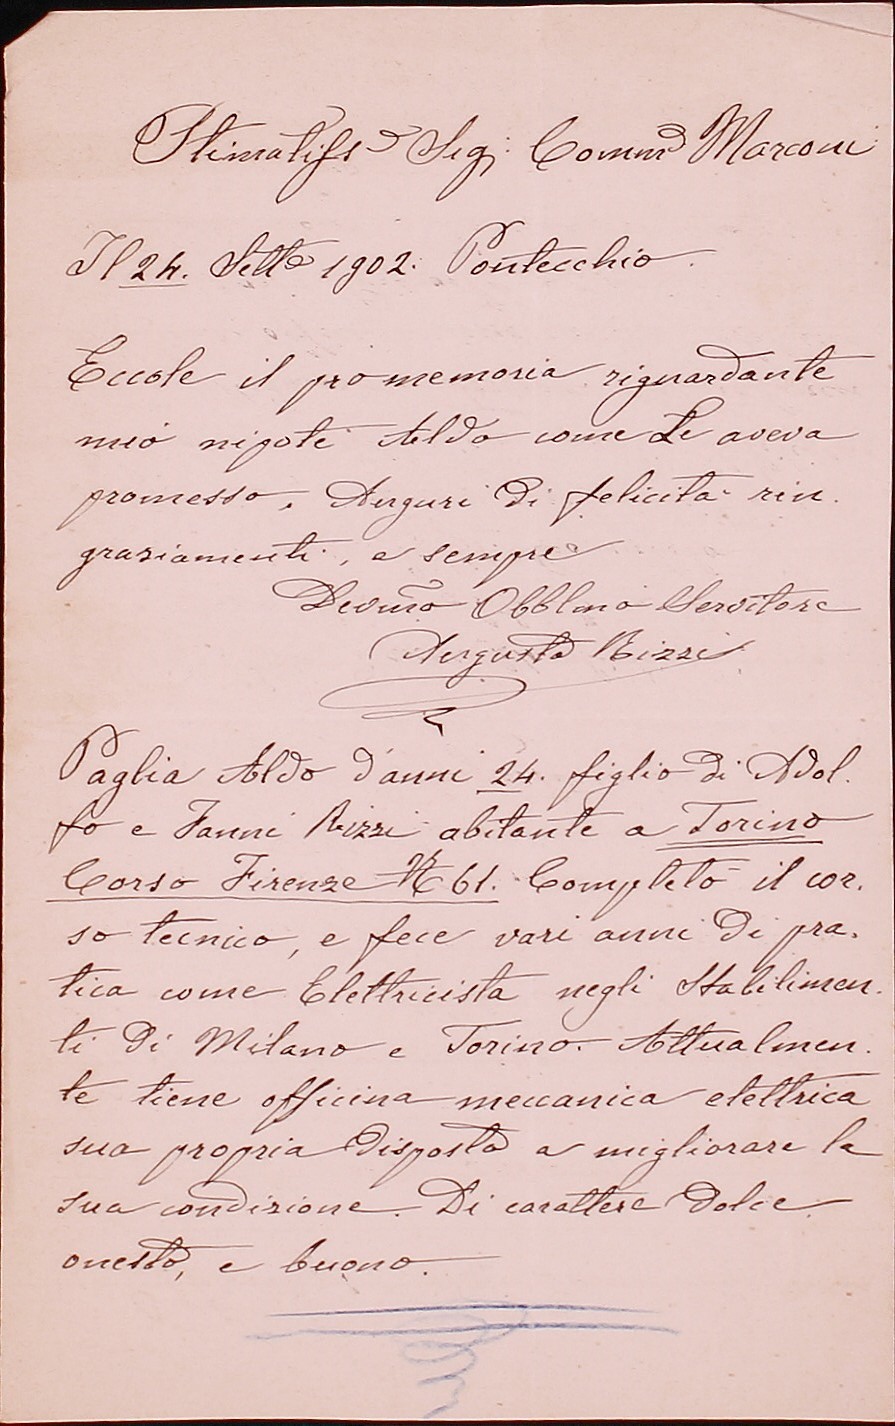 Stimatiss.o Sig. Comm.d Marconi
Il 24. Sett.e 1902. Pontecchio.
Eccole il pro memoria riguardante
mio nipote Aldo come Le aveva
promesso. Auguri di felicità rin.
graziamenti, e sempre
Devmo Obblmo Servitore
Augusto Rizzi
Paglia Aldo d'anni 24. figlio di Adol.
fo e Fanni Rizzi abitante a Torino
Corso Firenze N 61. Completò il cor.
so tecnico, e fece vari anni di pra.
tica come Elettricista negli Stabilimen.
ti di Milano e Torino. Attualmen.
te tiene officina meccanica elettrica
sua propria disposto a migliorare la
sua condizione. Di carattere dolce
onesto, e buono.